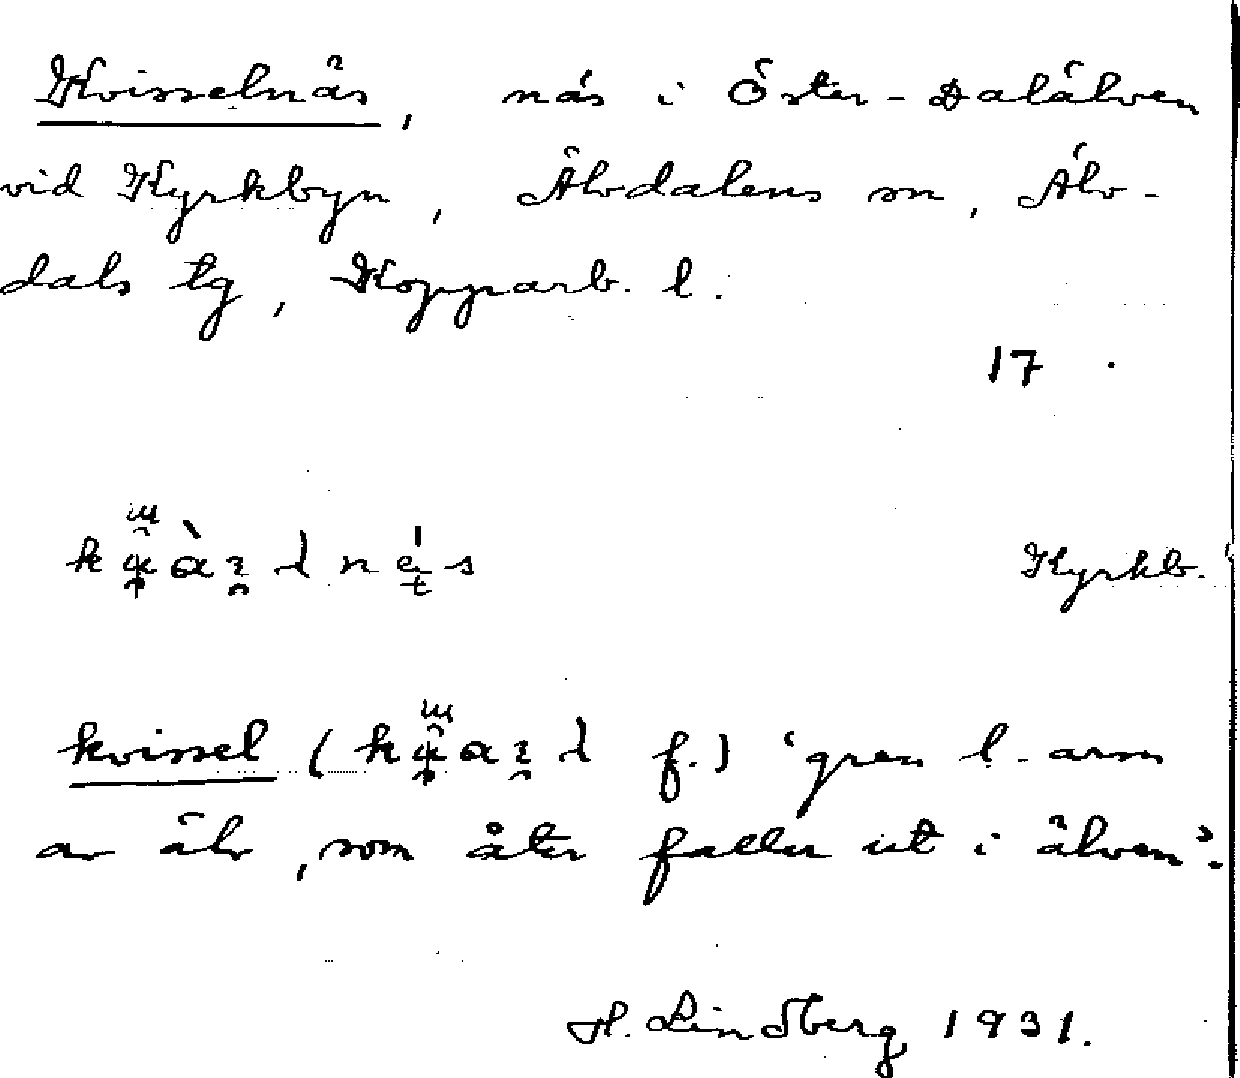 Kvisselnäs, näs i Öster-Dalälven
vid Kyrkbyn, Älvdalens sn, Älv-
dals tg, Kopparb. l.
17
Kyrkb.
kvissel ( f.) 'gren l. arm
av älv, som åter faller ut i älven'.
H. Lindberg 1931.